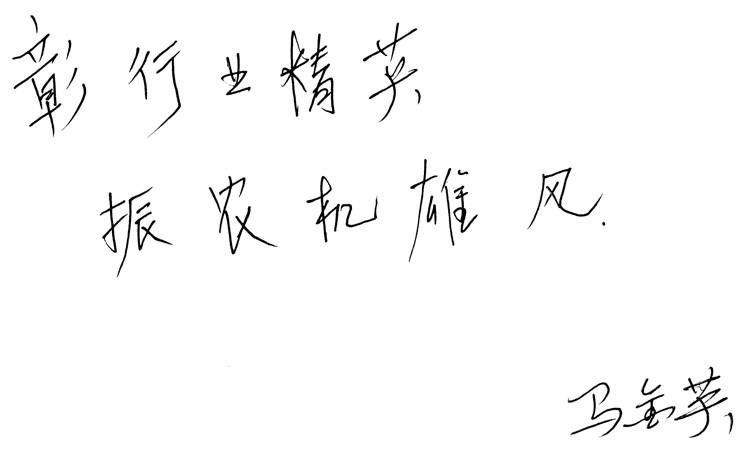 彰行业精英,
振农机雄风.
马金英,